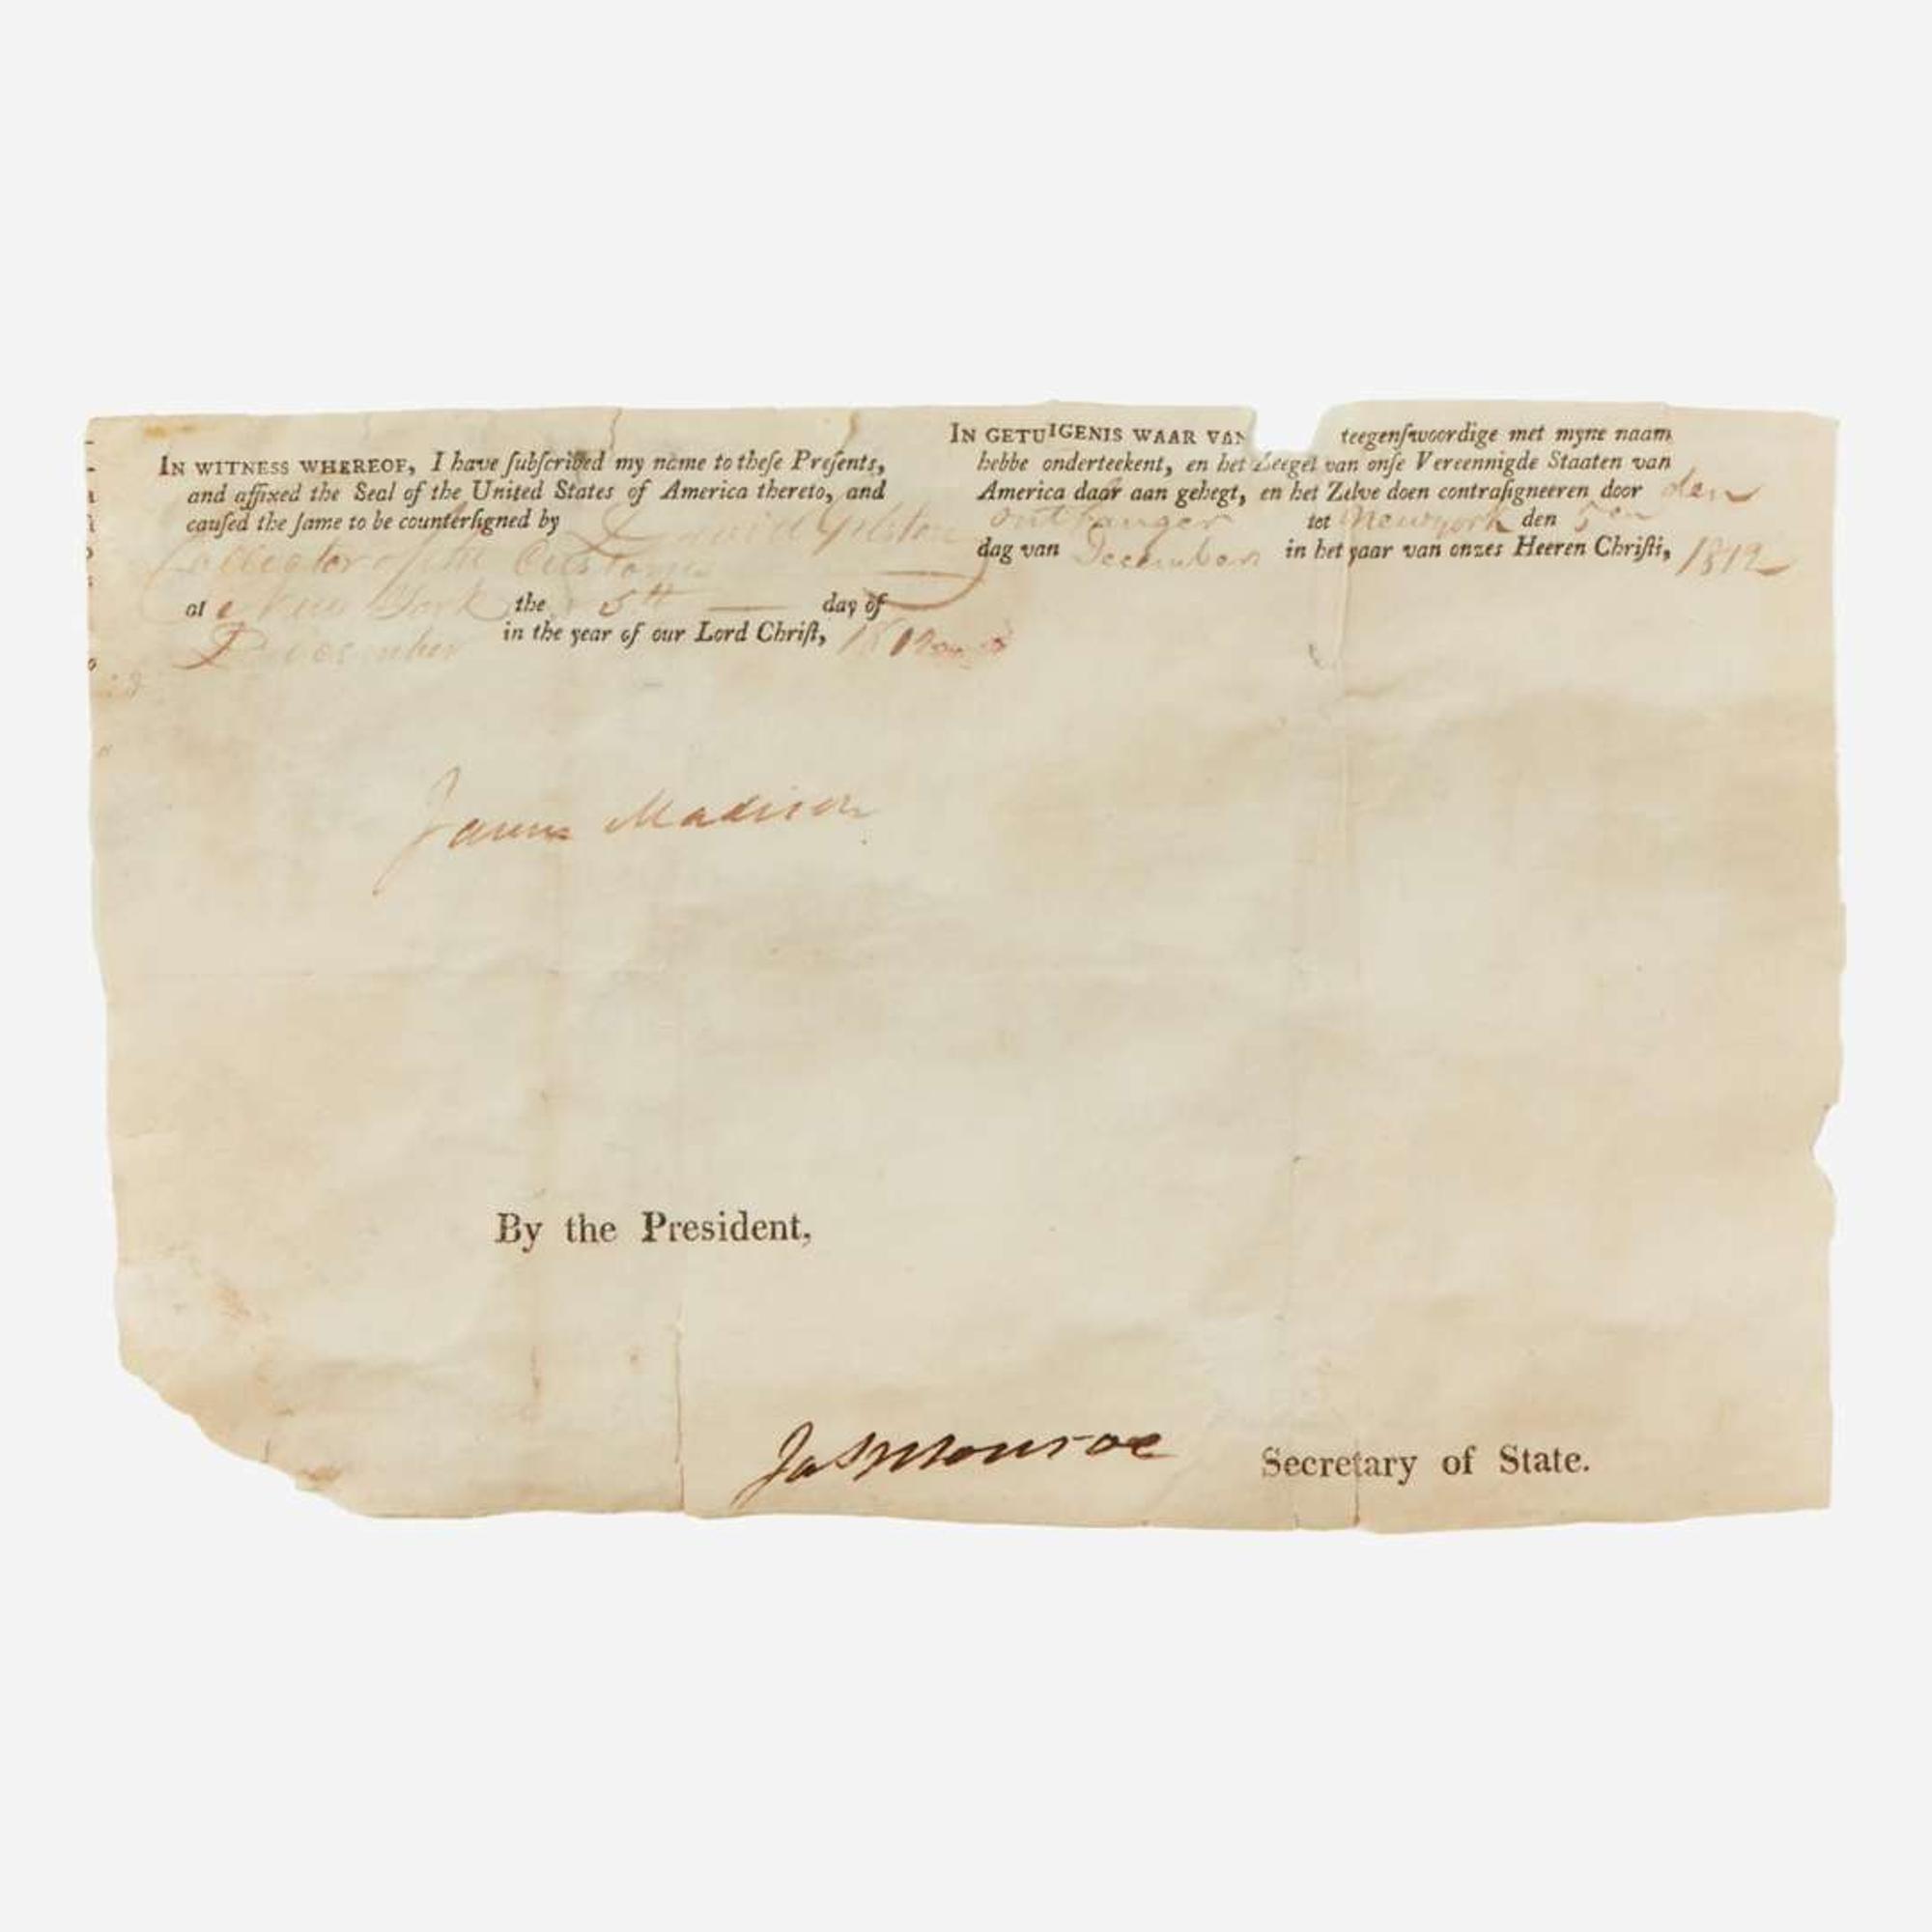 IN WITNESS WHEREOF, I have ſubſcribed my name to theſe Preſents,
and affixed the Seal of the United States of America thereto, and
cauſed the ſame to be counterſigned by David Gelston
Collector of the Customs
at New York the 5th day of
December in the year of our Lord Chriſt, 1812
IN GETUIGENIS WAAR VAN teegenſwoordige met myne naam
hebbe onderteekent, en het Zeegel van onſe Vereennigde Staaten van
America daar aan gehegt, en het Zelve doen contraſigneeren door den
ontfanger tot Newyork den 5en
dag van December in het yaar van onzes Heeren Chriſti, 1812
James Madison
By the President,
Jas Monroe Secretary of State.